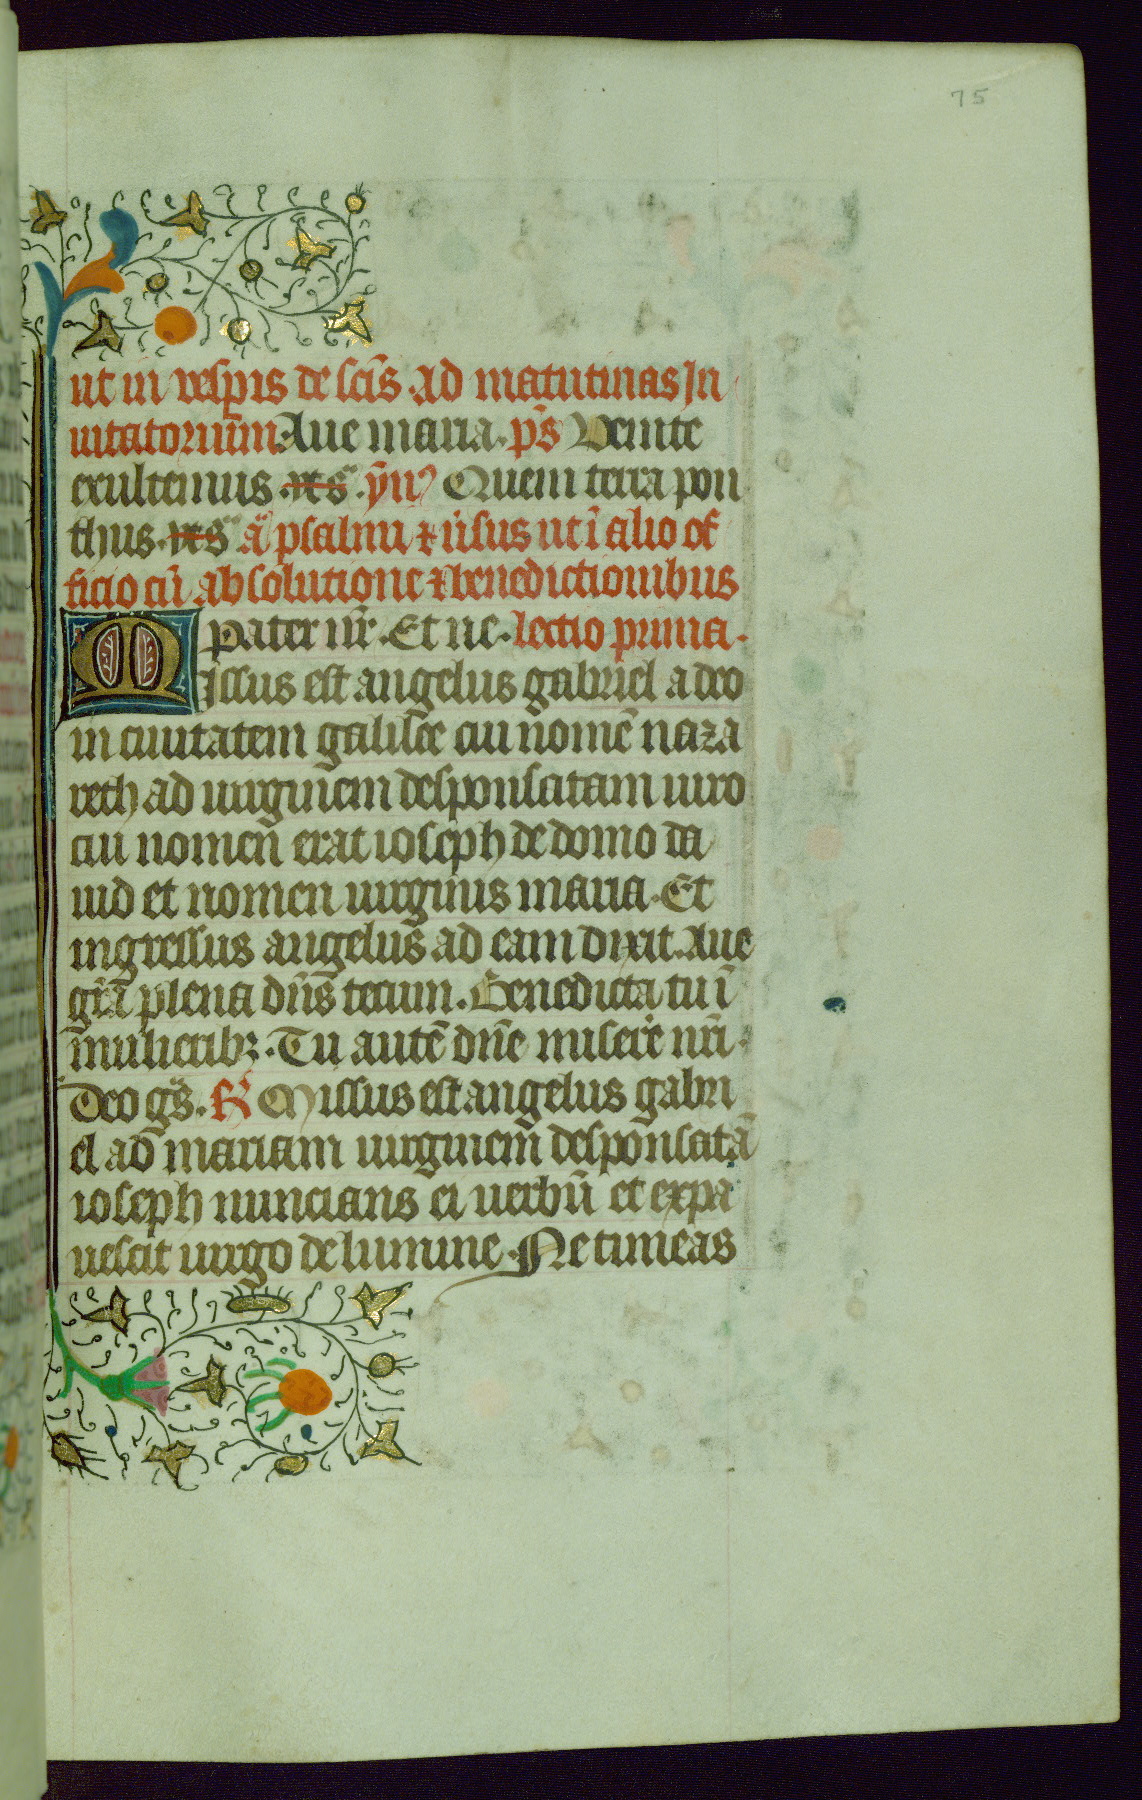 75
ut in vesp̄is de sc̄is. ad matutinas In
uitatoriūm Aue maria. p̄s Venite
exultemus. yn̄ Quem terra pon
thus. a psalmi ⁊ ūsus ut ī alio of
ficio cū absolutione ⁊ benedictionibus
pater nr̄. Et ne. lectio prima.
Missus est angelus gabriel a deo
in ciuitatem galilee cui nomē naza
reth ad uirginem desponsatam uiro
cui nomen erat ioseph de domo da
uid et nomen uirginis maria. Et
ingressus angelus ad eam dixit. Aue
gr̄a plena dn̄s tecum. Benedicta tu ī
mulieribꝫ. Tu autē dn̄e miserē nr̄i.
Deo gr̄s. R̷ Missus est angelus gabri
el ad mariam uirginem desponsatā
ioseph nuncians ei uerbū et expa
uescit uirgo de lumine. Ne timeas